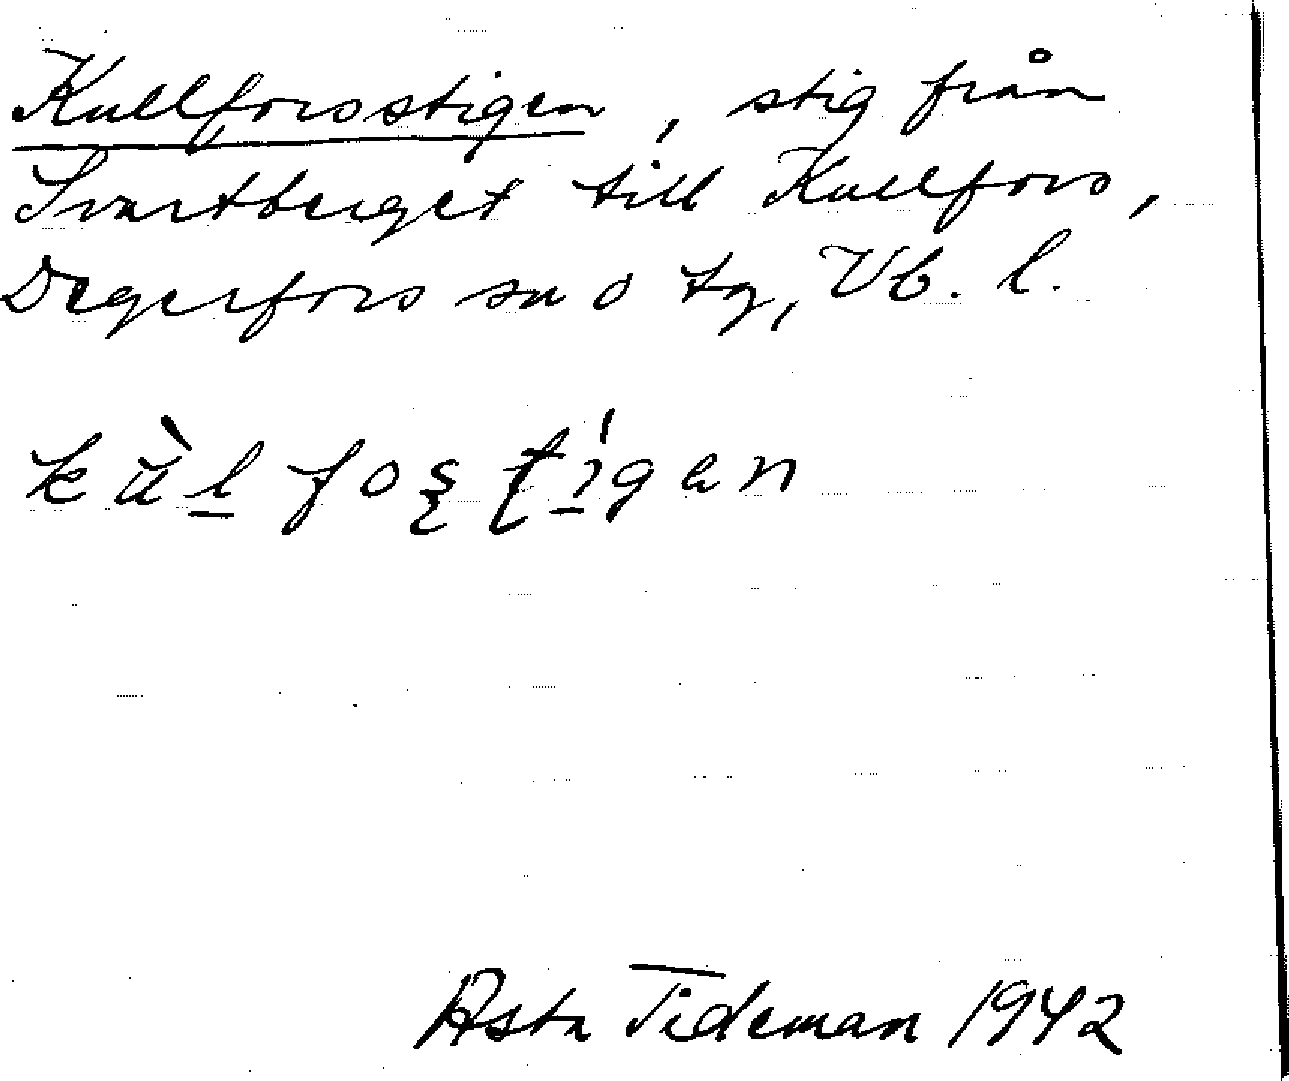 Kullforsstigen, stig från
Svartberget till Kullfors,
Degerfors sn o tg, Vb. l.
kùl foʂʈi̠gan
Asta Tideman 1942